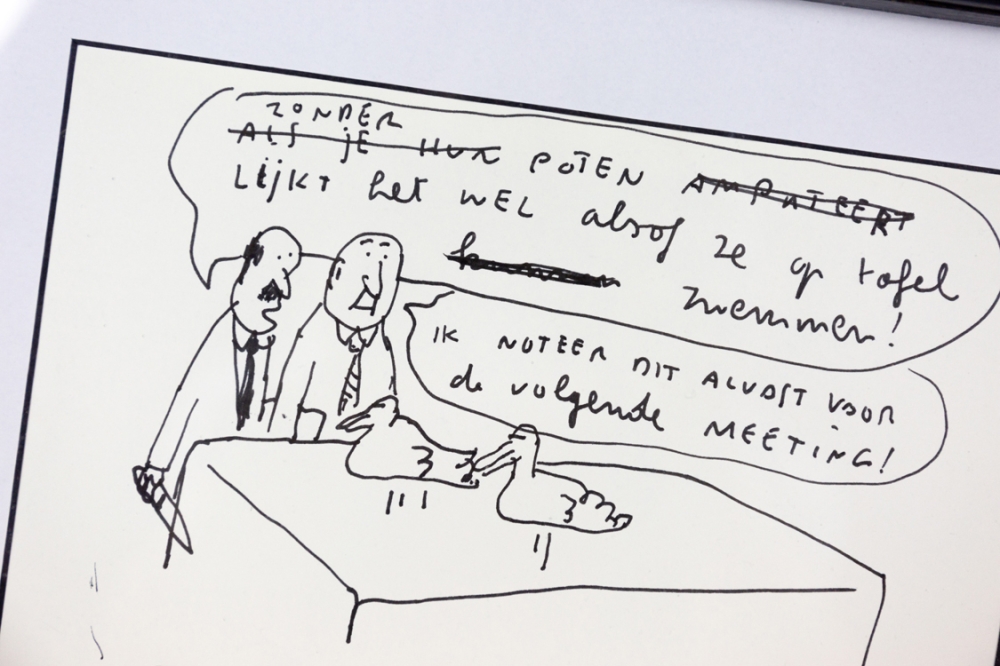 ZONDER
ALS JE HUN POTEN AMPUTEERT
LIJKT het WEL alsof ze op tafel
zwemmen!
IK NOTEER DIT ALVAST VOOR
de volgende MEETING!